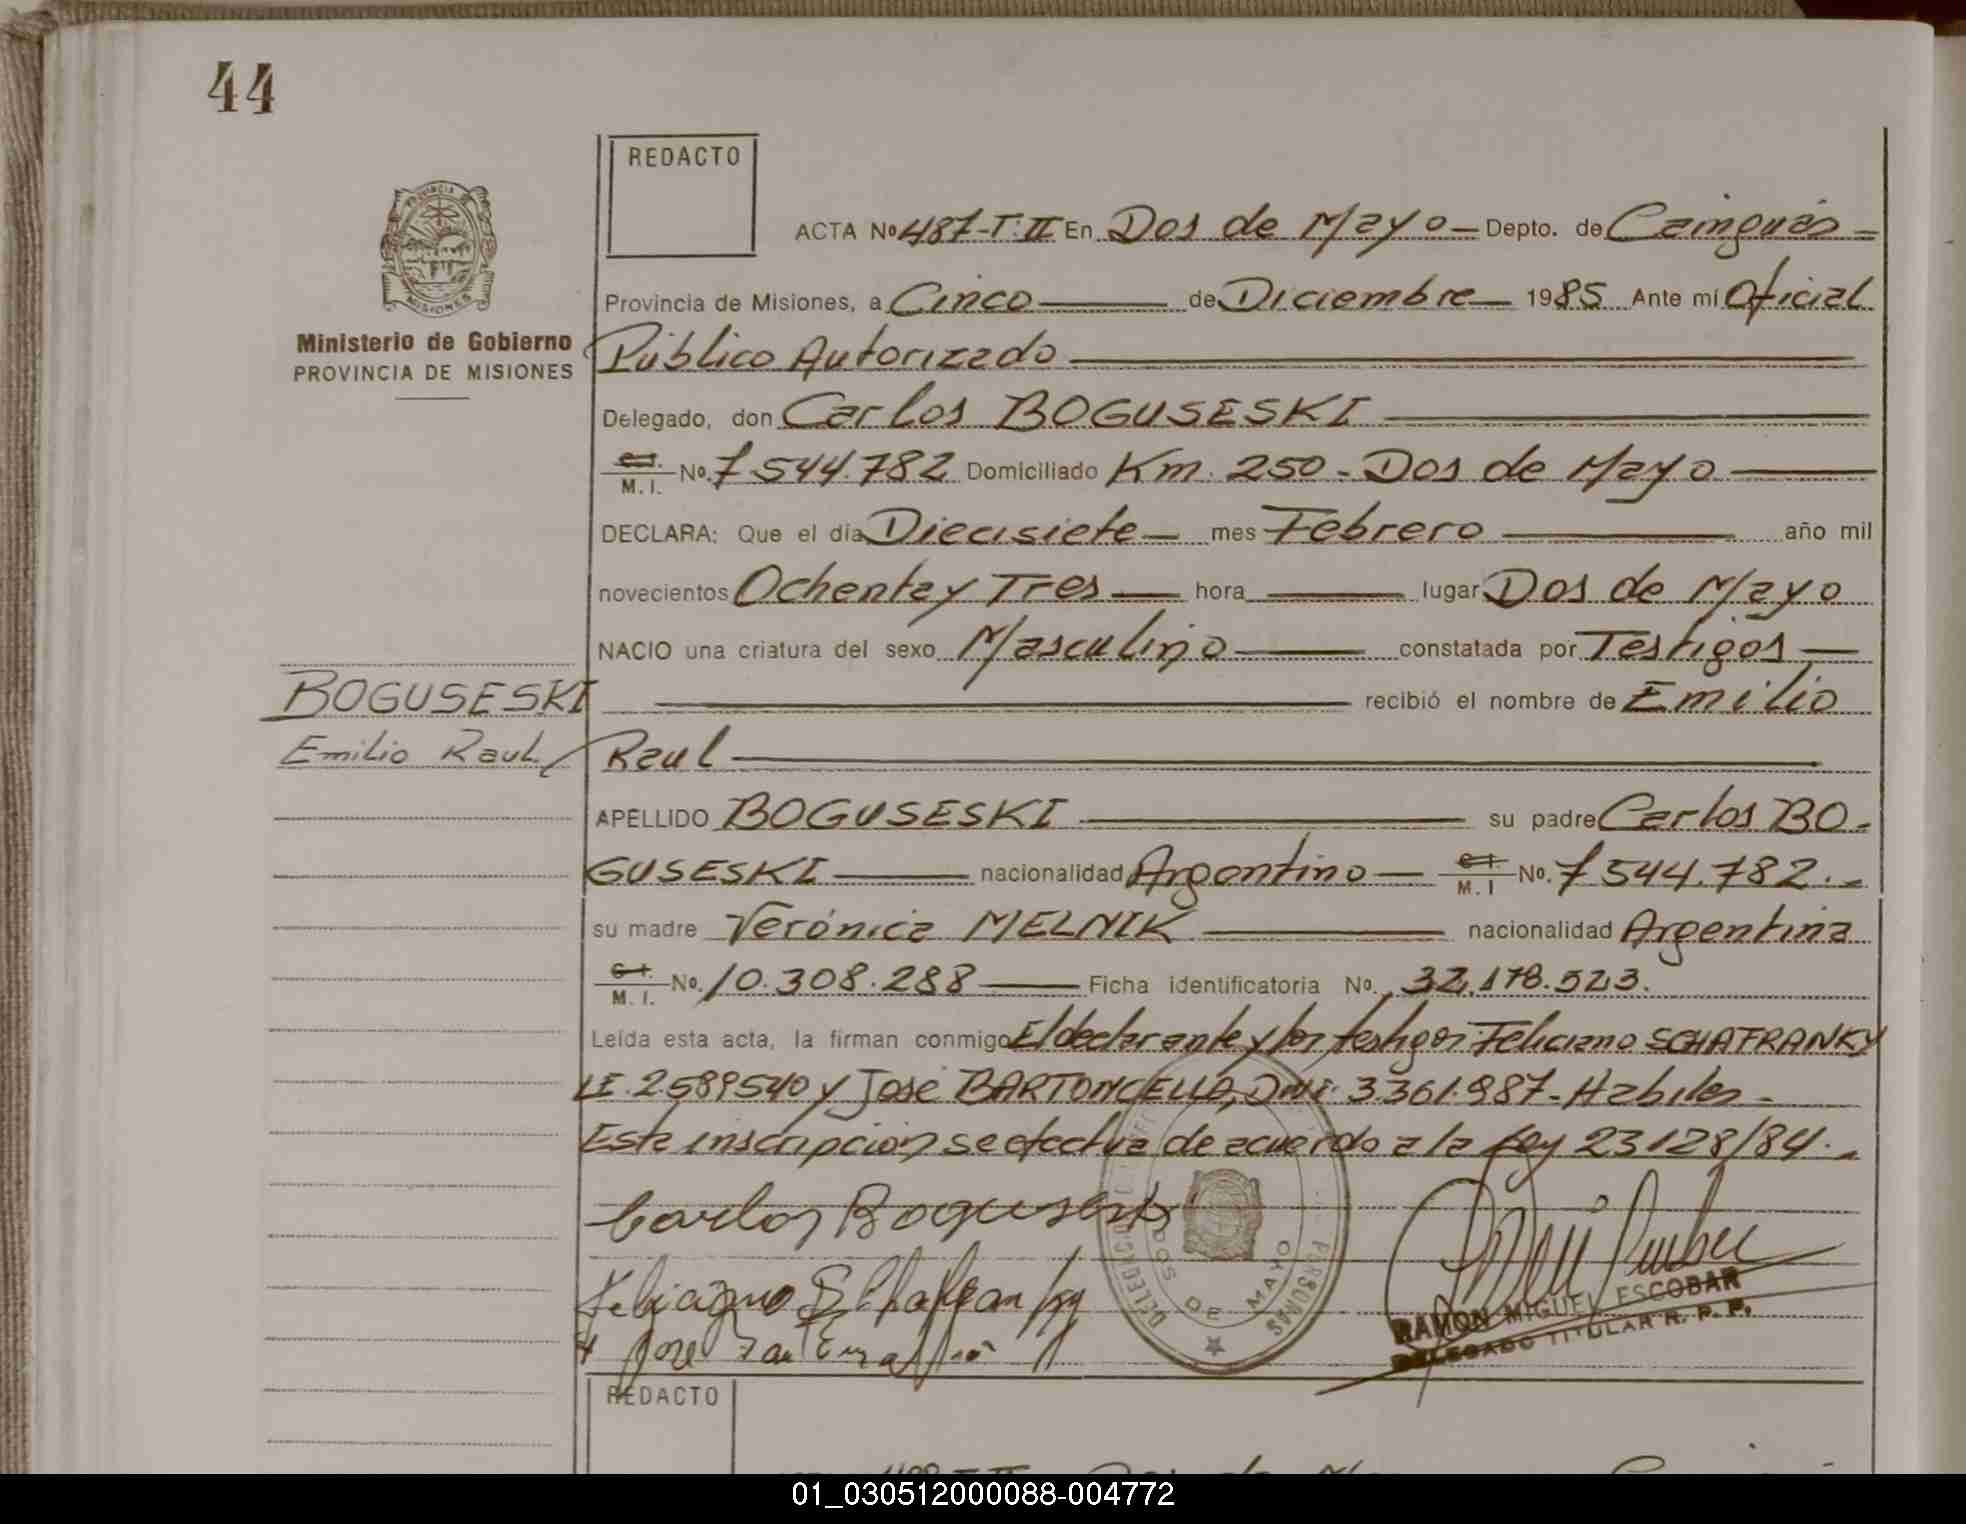 44
REDACTO
ACTA Nº 487-T:II En Dos de Mayo Depto. de Cainguás
Provincia de Misiones, a Cinco de Diciembre 1985 Ante mí Oficial
Público Autorizado
Delegado, don Carlos BOGUSESKI
C.I. M.I. Nº. 7.544.782 Domiciliado Km. 250 - Dos de Mayo
DECLARA: Que el día Diecisiete mes Febrero año mil
novecientos Ochenta y Tres hora lugar Dos de Mayo
NACIO una criatura del sexo Masculino constatada por Testigos
recibió el nombre de Emilio
Raul
APELLIDO BOGUSESKI su padre Carlos BO-
GUSESKI nacionalidad Argentino C.I. M.I Nº. 7.544.782.-
su madre Verónica MELNIK nacionalidad Argentina
C.I. M.I. Nº. 10.308.288 Ficha identificatoria Nº. 32.178.523.
Leída esta acta, la firman conmigo El declarante y los testigos: Feliciano SCHAFRANKY
LE. 2589540 y José BARTONCELLO, DNI: 3.361.987- Habiles-
Esta inscripción se efectua de acuerdo a la Ley 23128/84.-
Ministerio de Gobierno
PROVINCIA DE MISIONES
PROVINCIA DE
MISIONES
BOGUSESKI
Emilio Raul
Carlos Boguseski
Feliciano Schafranky
José
PERSONAS
DOS DE MAYO
RAMON MIGUEL ESCOBAR
DELEGADO TITULAR R. P. P.
REDACTO
01_030512000088-004772